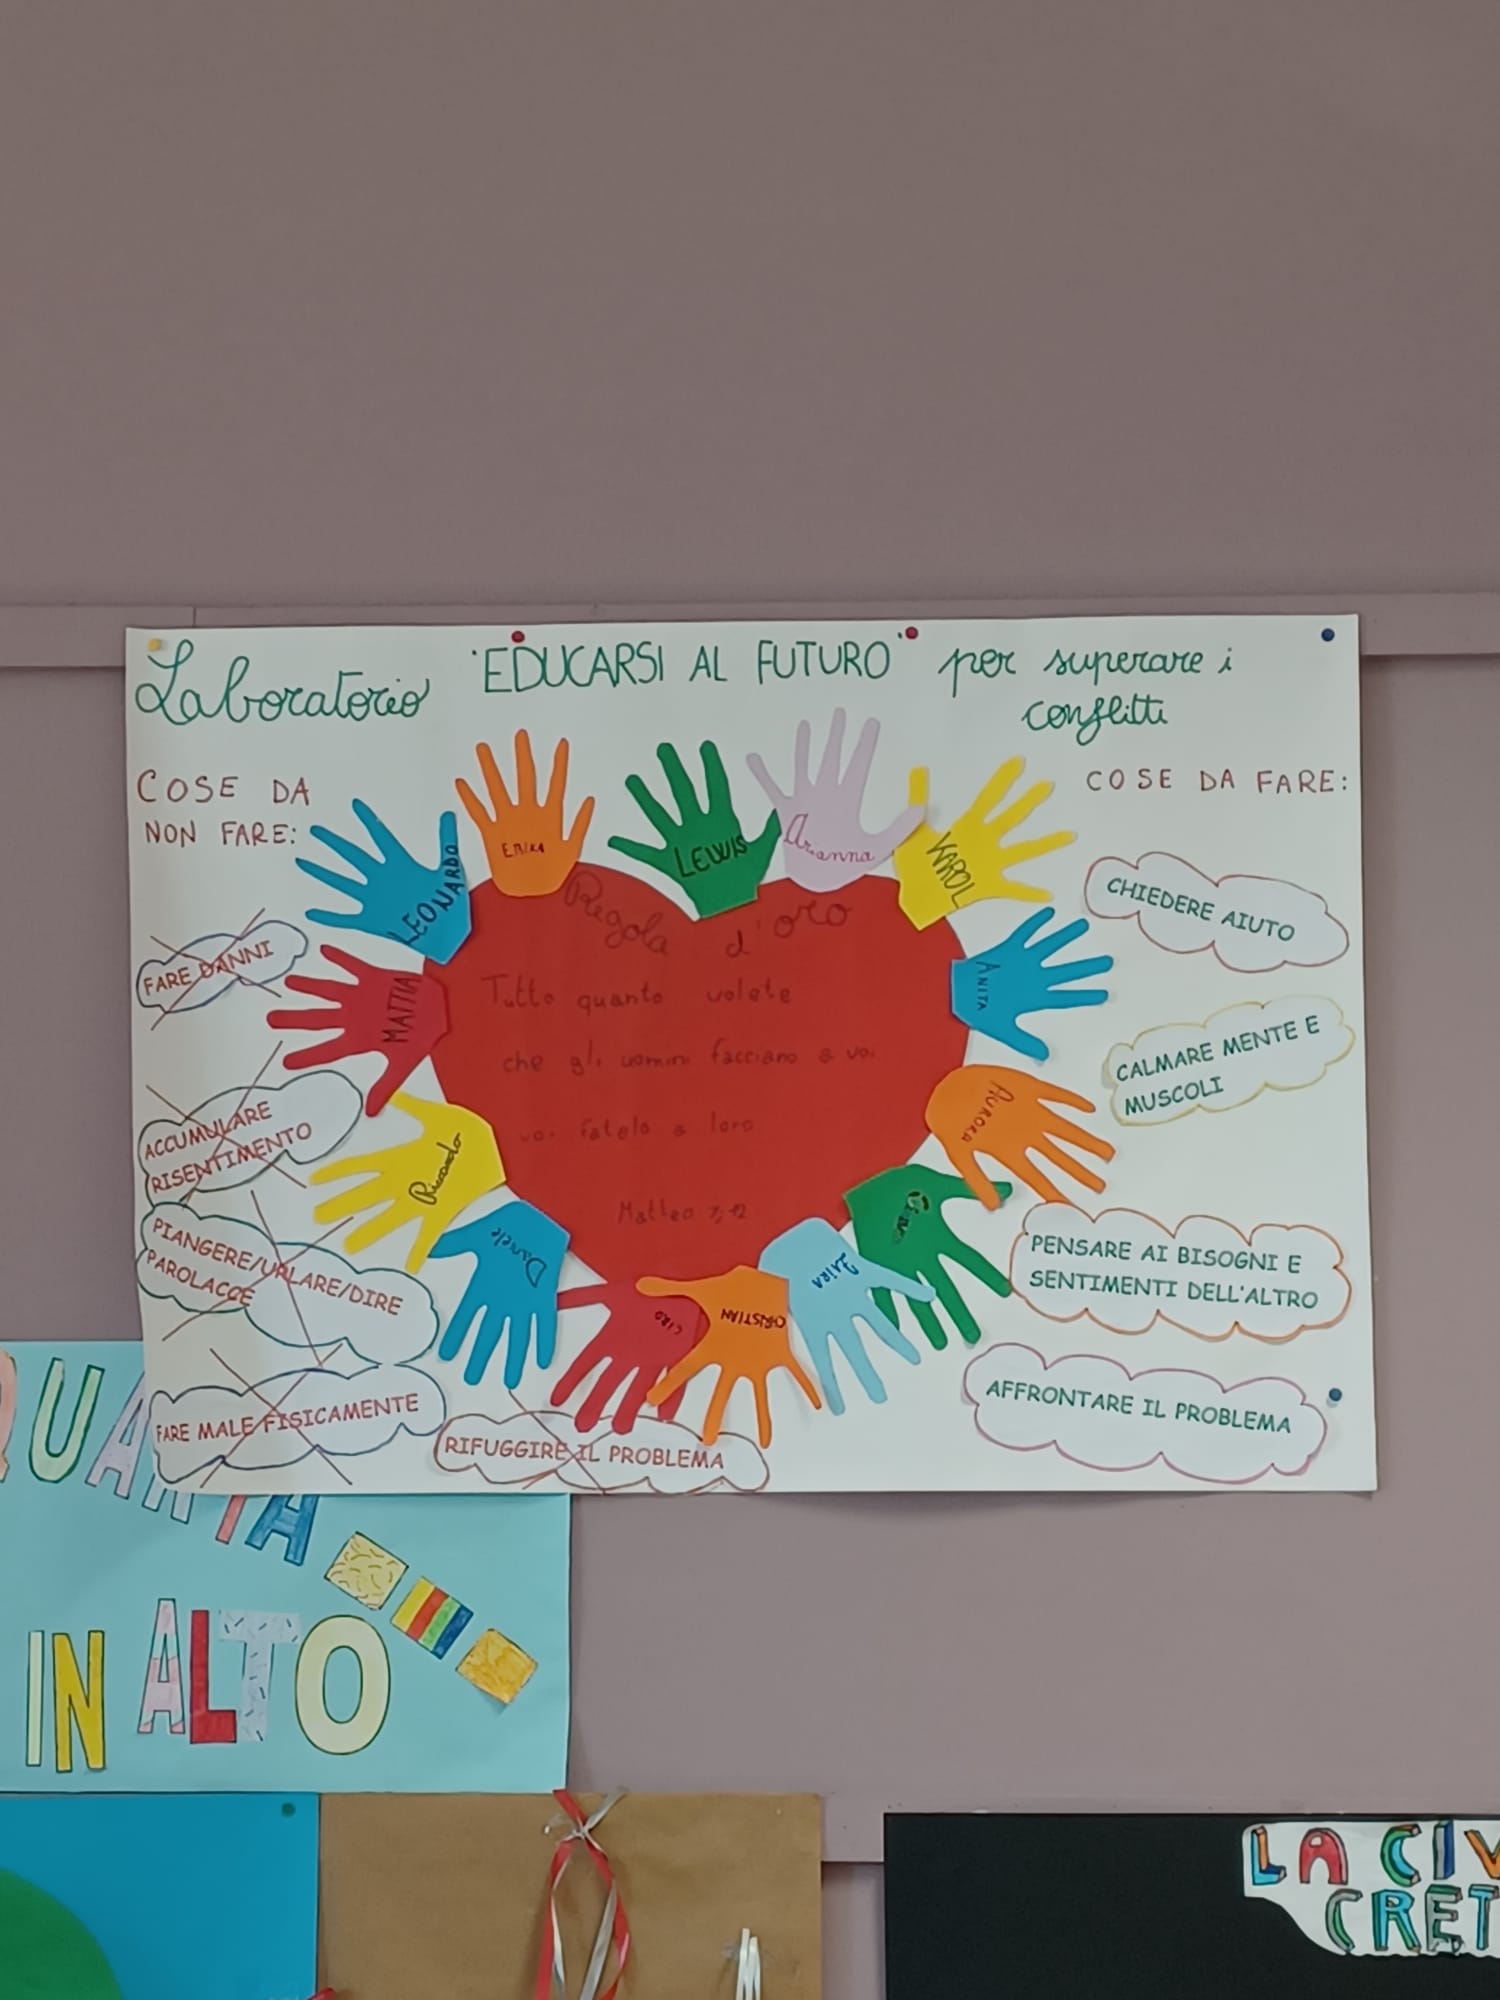 Laboratorio "EDUCARSI AL FUTURO" per superare i
conflitti
COSE DA
NON FARE:
COSE DA FARE:
LEONARDO
ERIKA
LEWIS
Arianna
KAROL
MATTIA
ANITA
Riccardo
AURORA
Daniele
CIRO
CHRISTIAN
ZAIRA
Regola d'oro
Tutto quanto volete
che gli uomini facciano a voi
voi fatelo a loro
Matteo 7,12
FARE DANNI
ACCUMULARE
RISENTIMENTO
PIANGERE/URLARE/DIRE
PAROLACCE
FARE MALE FISICAMENTE
RIFUGGIRE IL PROBLEMA
CHIEDERE AIUTO
CALMARE MENTE E
MUSCOLI
PENSARE AI BISOGNI E
SENTIMENTI DELL'ALTRO
AFFRONTARE IL PROBLEMA
QUARTA
IN ALTO
LA CIV
CRET